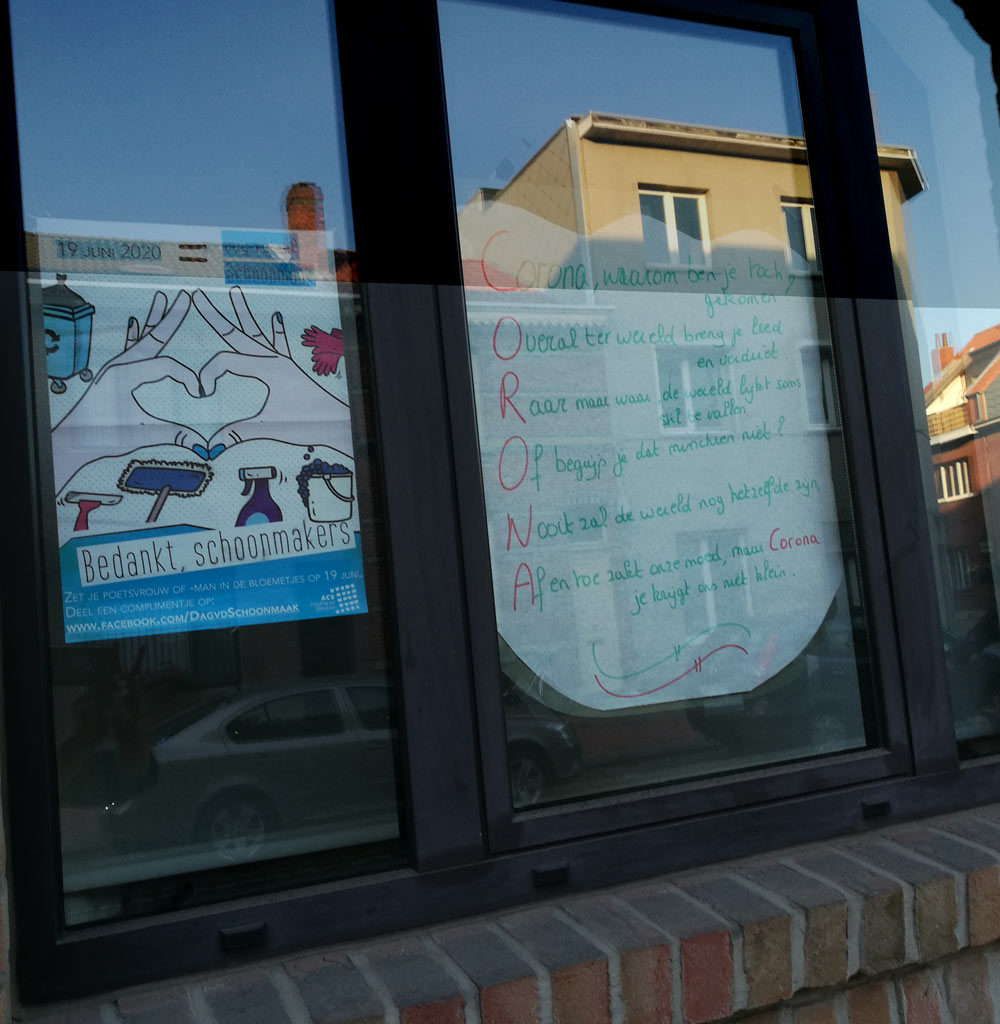 19 JUNI 2020 =
Schoonmaak
Bedankt, schoonmakers
ZET JE POETSVROUW OF -MAN IN DE BLOEMETJES OP 19 JUNI.
DEEL EEN COMPLIMENTJE OP:
WWW.FACEBOOK.COM/DAGVDSCHOONMAAK
ACV
Corona, waarom ben je toch
gekomen?
Overal ter wereld breng je leed
en verdriet.
Raar maar waar, de wereld lijkt soms
stil te vallen,
Of begrijp je dat misschien niet?
Nooit zal de wereld nog hetzelfde zijn,
Af en toe zakt onze moed, maar Corona
je krijgt ons niet klein.